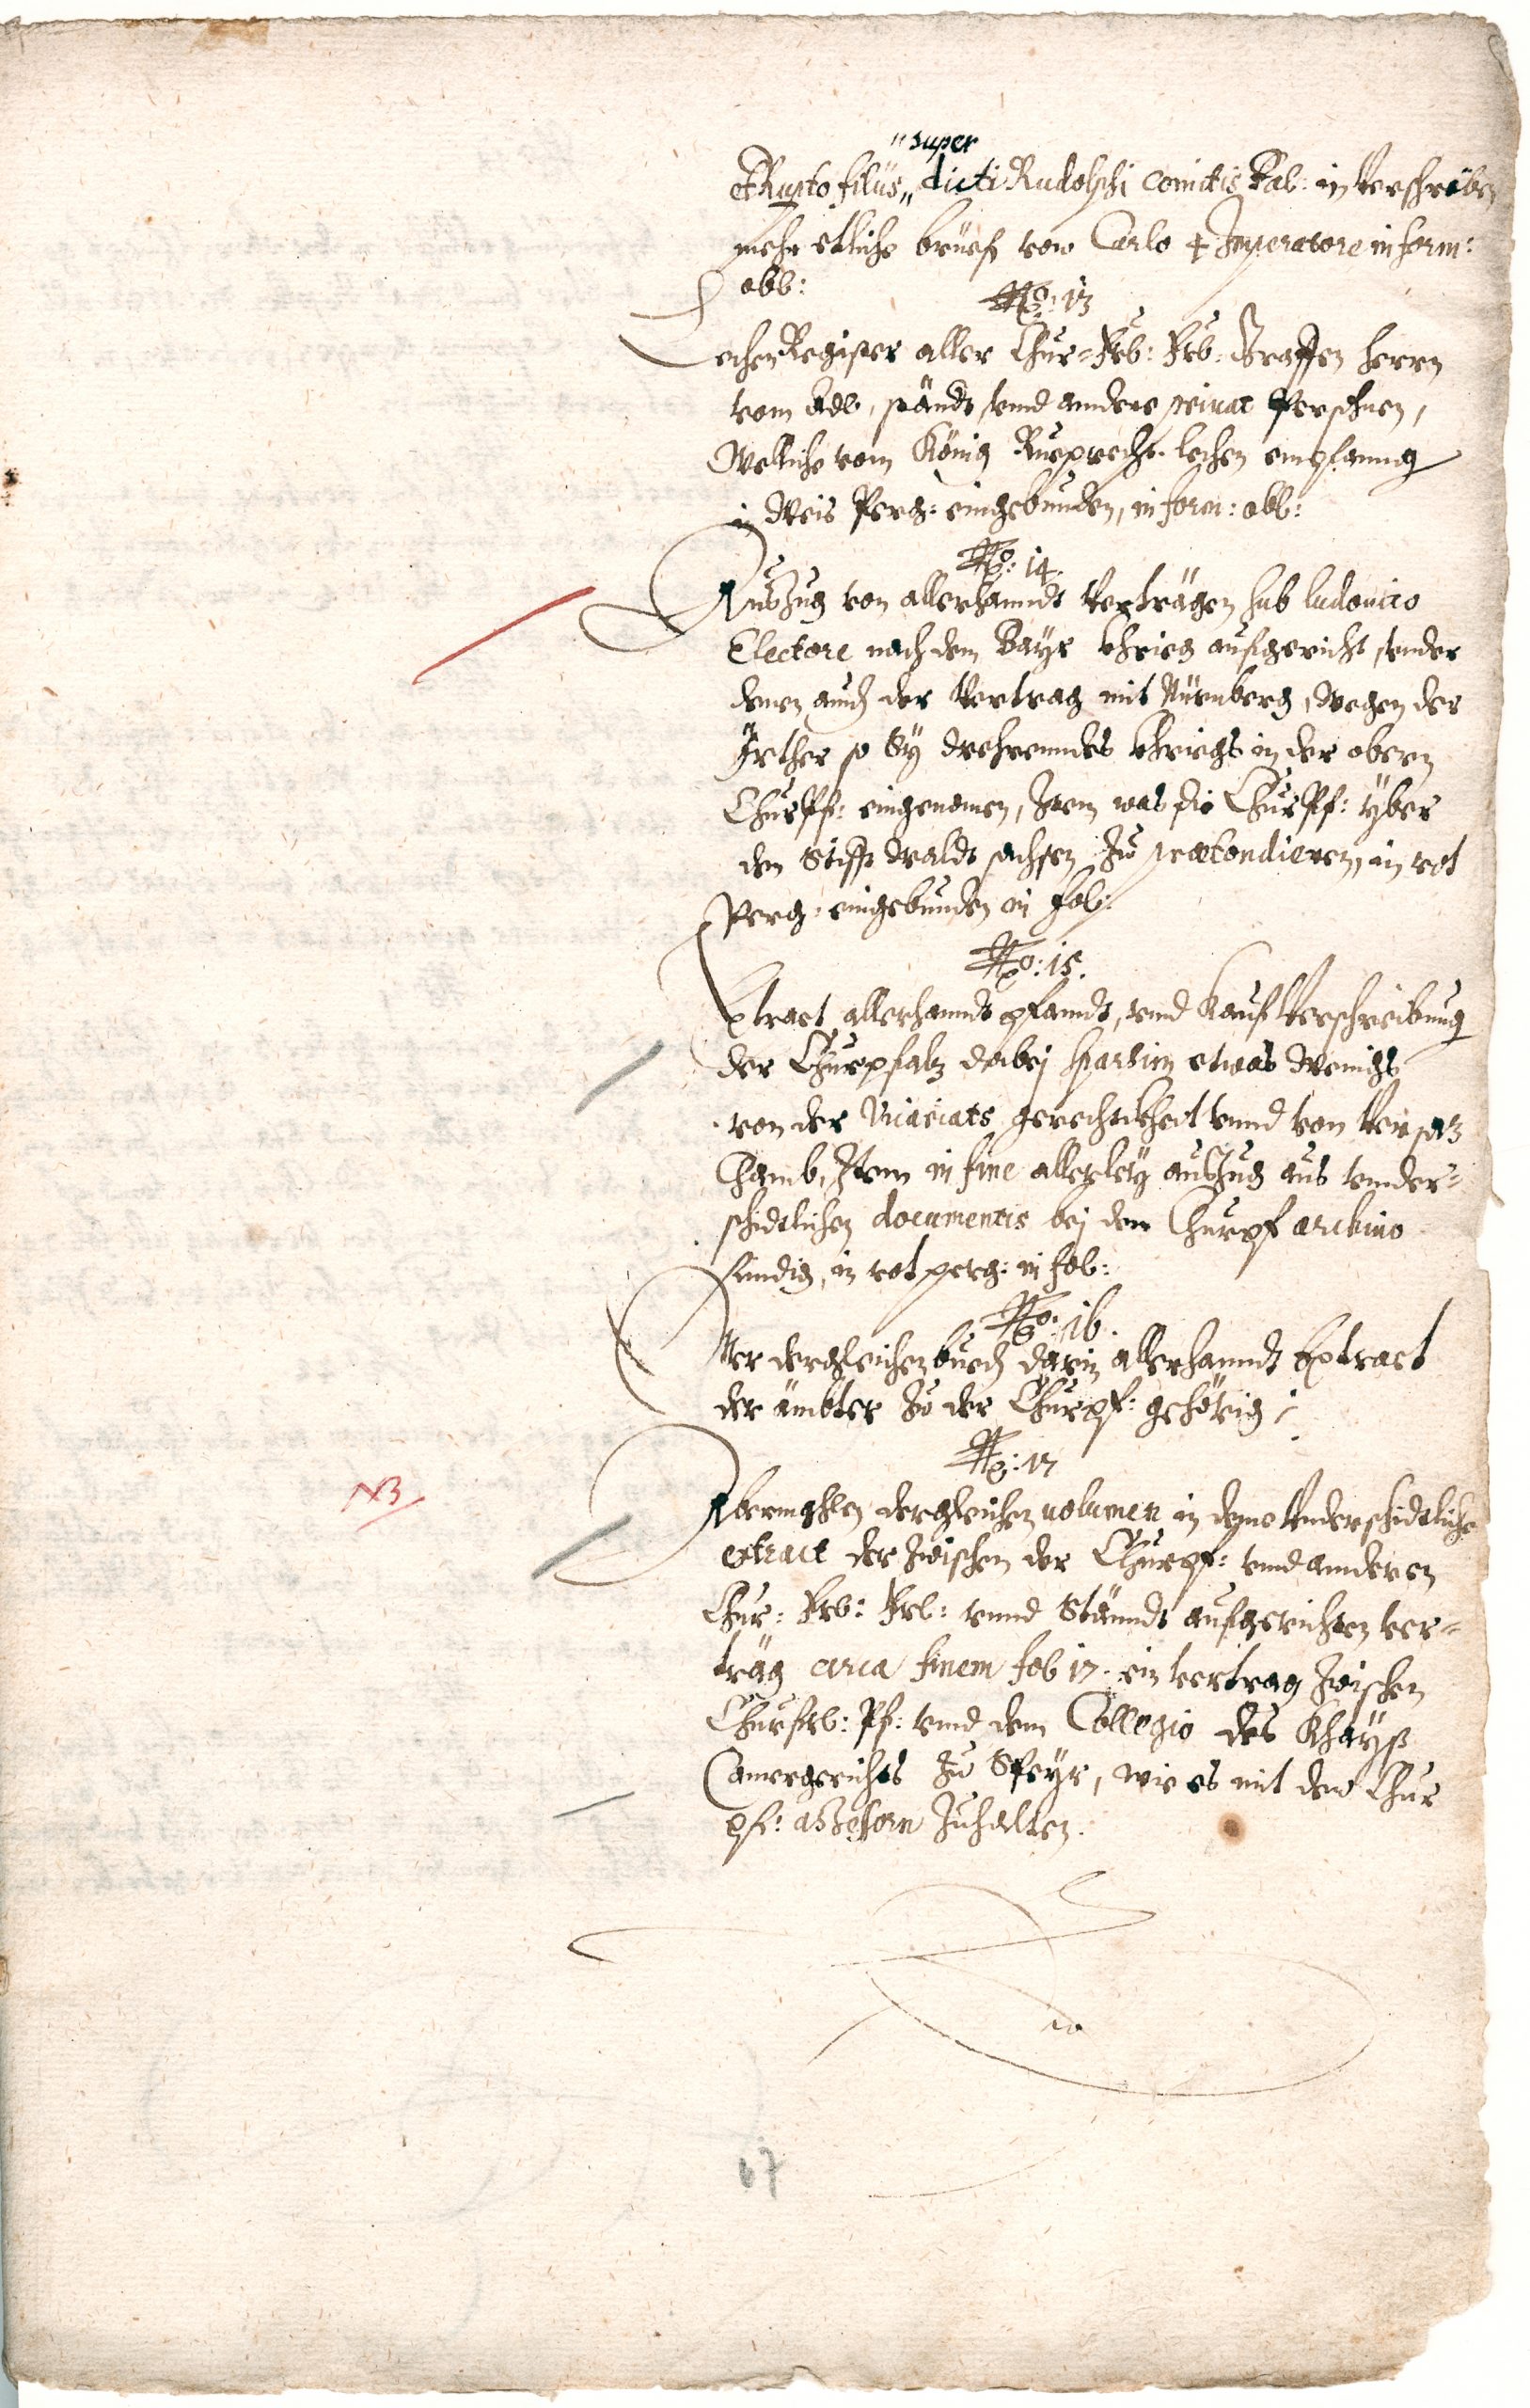 „super
et Ruperto filiis „ dicti Rudolphi comitis Pal: in Verschreiben
mehr etliche brieff von Carlo 4 Imperatore in form:
obl:
No: 13
Lechen Register aller Chur= Frl: Frl: Graffen Herrn
vom Adl, ständt vnnd andere privat Persohnen,
Welliche vom König Ruprecht lechen empfanng
in Weis Perg: eingebunden, in form: obl:
No: 14.
Auszug von allerhanndt Verträgen sub ludovico
Electore nach dem Bayr khrieg aufgericht, vnder
denen auch der Vertrag mit Nürnberg, wegen der
Örther so Sy wehrenndes khriegs in der obern
ChurPf: eingenomen, Item was die ChurPf: yber
den Stifft Waldtsachsen zu praetendieren, in rot
Perg: eingebunden in fol:
No: 15.
Extract allerhanndt pfandt, vnnd Kauf Verschreibung
der Churpfalz dabej sparsim etwas wenigs
von der Vicariats gerechtikheit vnnd von Versaz
Chamb, Item in fine allerley auszug aus vnder=
schidtlichen documentis bej dem Churpf archivo
findig, in rot perg: in fol:
No: 16.
Mer dergleichen buech darin allerhanndt Extract
der ämbter zu der Churpf: gehörig
No: 17
NB
Abermahlen dergleichen volumen in deme vnderschidtliche
extract der zwischen der Churpf: vnnd anderen
Chur: Frl: Frl: vnnd Stänndt aufgerichten ver=
träg circa finem fol 17. ein vertrag zwischen
Churfrl: Pf: vnnd dem Collegio des Khayß
Camergerichts zu Speyr, wie es mit dem Chur
pf: aßeßorn zuhalten.
67